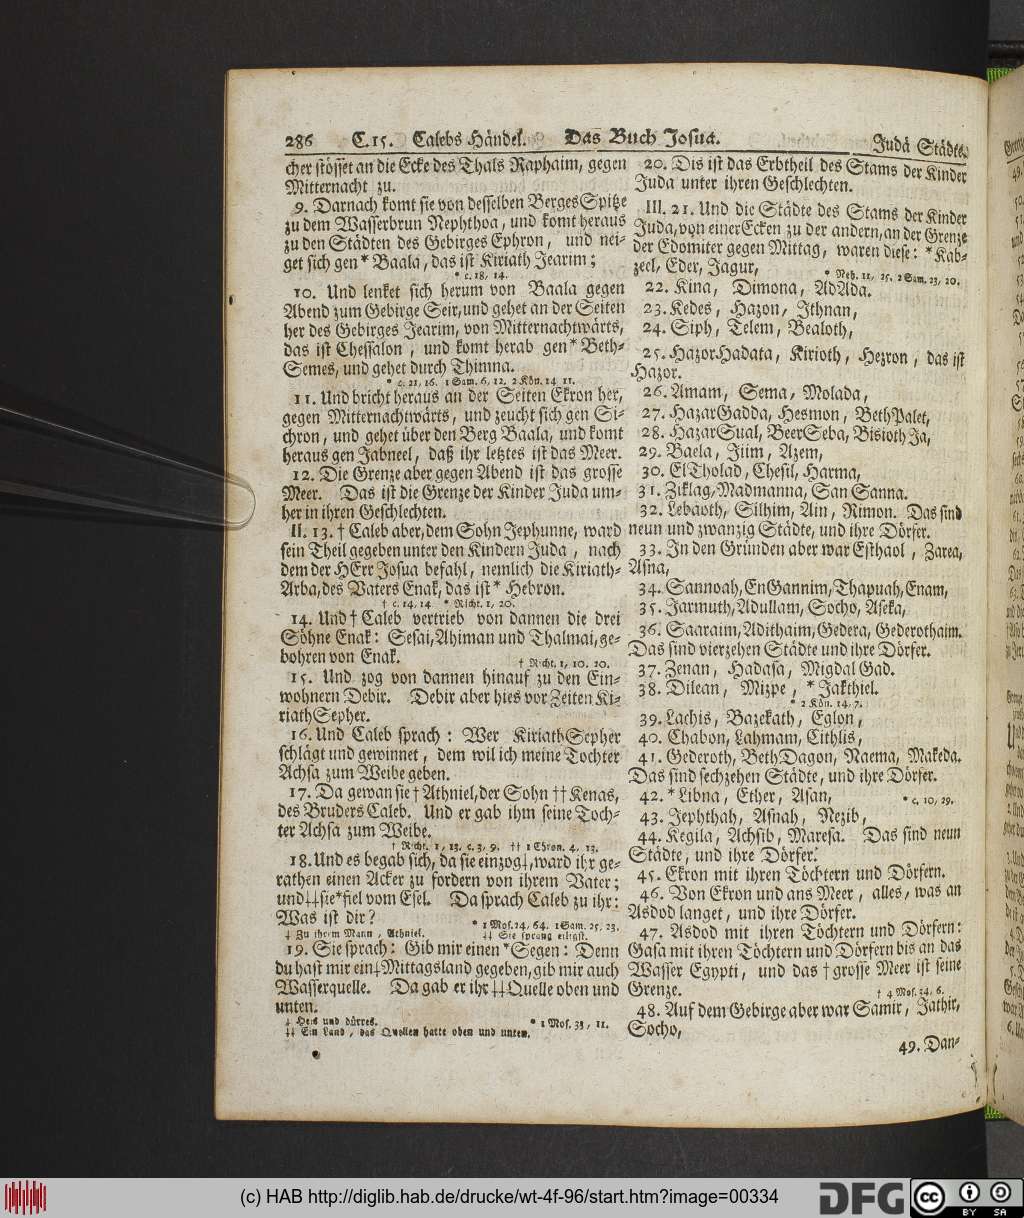 286 C.15. Calebs Händel. Das Buch Josua. Judä Städte.
cher stösset an die Ecke des Thals Raphaim, gegen
Mitternacht zu.
9. Darnach komt sie von desselben Berges Spitze
zu dem Wasserbrun Nephthoa, und komt heraus
zu den Städten des Gebirges Ephron, und nei-
get sich gen * Baala, das ist Kiriath Jearim;
* c. 18, 14.
10. Und lenket sich herum von Baala gegen
Abend zum Gebirge Seir, und gehet an der Seiten
her des Gebirges Jearim, von Mitternachtwärts,
das ist Chessalon, und komt herab gen * Beth-
Semes, und gehet durch Thimna.
* c. 21, 16. 1 Sam. 6, 12. 2 Kön. 14, 11.
11. Und bricht heraus an der Seiten Ekron her,
gegen Mitternachtwärts, und zeucht sich gen Si-
chron, und gehet über den Berg Baala, und komt
heraus gen Jabneel, daß ihr letztes ist das Meer.
12. Die Grenze aber gegen Abend ist das grosse
Meer. Das ist die Grenze der Kinder Juda um-
her in ihren Geschlechten.
II. 13. † Caleb aber, dem Sohn Jephunne, ward
sein Theil gegeben unter den Kindern Juda, nach
dem der HErr Josua befahl, nemlich die Kiriath-
Arba, des Vaters Enak, das ist * Hebron.
† c. 14, 14 * Richt. 1, 20.
14. Und † Caleb vertrieb von dannen die drei
Söhne Enak: Sesai, Ahiman und Thalmai, ge-
bohren von Enak.
† Richt. 1, 10. 20.
15. Und zog von dannen hinauf zu den Ein-
wohnern Debir. Debir aber hies vor Zeiten Ki-
riathSepher.
16. Und Caleb sprach: Wer KiriathSepher
schlägt und gewinnet, dem wil ich meine Tochter
Achsa zum Weibe geben.
17. Da gewan sie † Athniel, der Sohn †† Kenas,
des Bruders Caleb. Und er gab ihm seine Toch-
ter Achsa zum Weibe.
† Richt. 1, 13. c. 3, 9. †† 1 Chron. 4, 13.
18. Und es begab sich, da sie einzog‡, ward ihr ge-
rathen einen Acker zu fordern von ihrem Vater;
und ‡‡ sie * fiel vom Esel. Da sprach Caleb zu ihr:
Was ist dir?
* 1 Mos. 24, 64. 1 Sam. 25, 23.
‡ Zu ihrem Mann, Athniel. ‡‡ Sie sprang eiligst.
19. Sie sprach: Gib mir einen * Segen: Denn
du hast mir ein ‡ Mittagsland gegeben, gib mir auch
Wasserquelle. Da gab er ihr ‡‡ Quelle oben und
unten.
‡ Heis und dürres. * 1 Mos. 33, 11.
‡‡ Ein Land, das Quellen hatte oben und unten.
20. Dis ist das Erbtheil des Stams der Kinder
Juda unter ihren Geschlechten.
III. 21. Und die Städte des Stams der Kinder
Juda, von einer Ecken zu der andern, an der Grenze
der Edomiter gegen Mittag, waren diese: * Kab-
zeel, Eder, Jagur,
* Neh. 11, 25. 2 Sam. 23, 20.
22. Kina, Dimona, AdAda.
23. Kedes, Hazon, Jthnan,
24. Siph, Telem, Bealoth,
25. HazorHadata, Kirioth, Hezron, das ist
Hazor.
26. Amam, Sema, Molada,
27. HazarGadda, Hesmon, BethPalet,
28. HazarSual, BeerSeba, BisiothJa,
29. Baela, Jiim, Azem,
30. ElTholad, Chesil, Harma,
31. Ziklag, Madmanna, SanSanna.
32. Lebaoth, Silhim, Ain, Rimon. Das sind
neun und zwanzig Städte, und ihre Dörfer.
33. In den Gründen aber war Esthaol, Zarea,
Asna,
34. Sannoah, EnGannim, Thapuah, Enam,
35. Jarmuth, Adullam, Socho, Aseka,
36. Saaraim, Adithaim, Gedera, Gederothaim.
Das sind vierzehen Städte und ihre Dörfer.
37. Zenan, Hadasa, Migdal Gad.
38. Dilean, Mizpe, * Jakthiel.
* 2 Kön. 14, 7.
39. Lachis, Bazekath, Eglon,
40. Chabon, Lahmam, Cithlis,
41. Gederoth, BethDagon, Naema, Makeda.
Das sind sechzehen Städte, und ihre Dörfer.
42. * Libna, Ether, Asan, * c. 10, 29.
43. Jephthah, Asnah, Nezib,
44. Kegila, Achsib, Maresa. Das sind neun
Städte, und ihre Dörfer.
45. Ekron mit ihren Töchtern und Dörfern.
46. Von Ekron und ans Meer, alles, was an
Asdod langet, und ihre Dörfer.
47. Asdod mit ihren Töchtern und Dörfern:
Gasa mit ihren Töchtern und Dörfern bis an das
Wasser Egypti, und das † grosse Meer ist seine
Grenze.
† 4 Mos. 34, 6.
48. Auf dem Gebirge aber war Samir, Jathir,
Socho,
49. Dan-
(c) HAB http://diglib.hab.de/drucke/wt-4f-96/start.htm?image=00334
DFG
cc BY SA